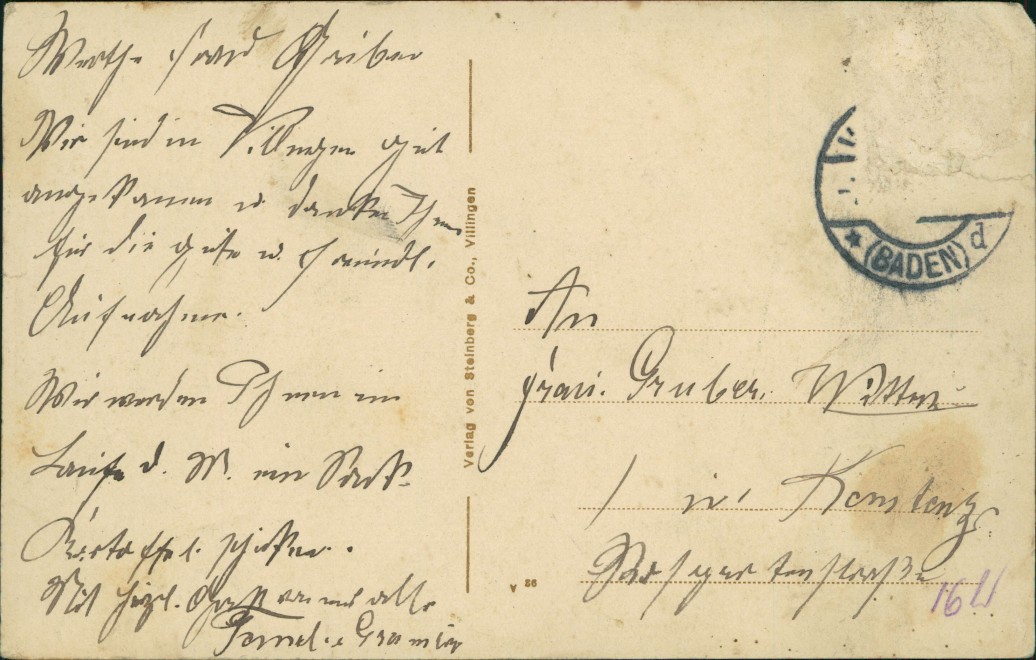 Werthe Frau Gruber
Wir sind in Villingen gut
angekommen u. danken Ihnen
für die gute u. freundl.
Aufnahme.
Wir werden Ihnen im
Laufe d. W. ein Sack
Kartoffel schicken.
Mit herzl. Gruß von uns alle
Famil.
Verlag von Steinberg & Co., Villingen
V 86
(BADEN) d
An
Frau. Gruber. Witwe
in Konstanz
16